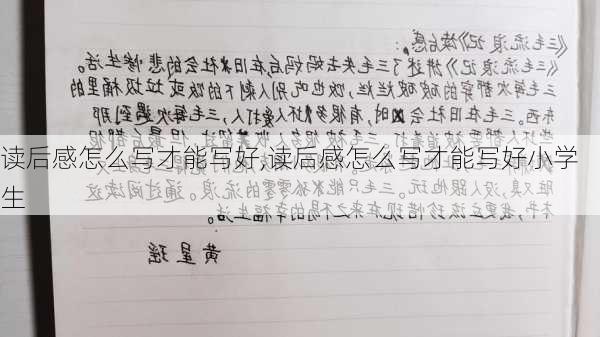 《三毛流浪记》读后感:
《三毛流浪记》讲述了三毛失去妈妈后在旧社会的悲惨生活。
三毛每次都穿的破破烂烂,饭也吃别人剩下的饭或垃圾桶里的
东西。三毛在旧社会时,有很多坏人爱打人,三毛每次遇到那
读后感怎么写才能写好,读后感怎么写才能写好小学
生
脏又臭,没人跟他玩。三毛只能孤零零的流浪。通过阅读这
本书,我更应该珍惜现在来之不易的幸福生活。
黄星瑶